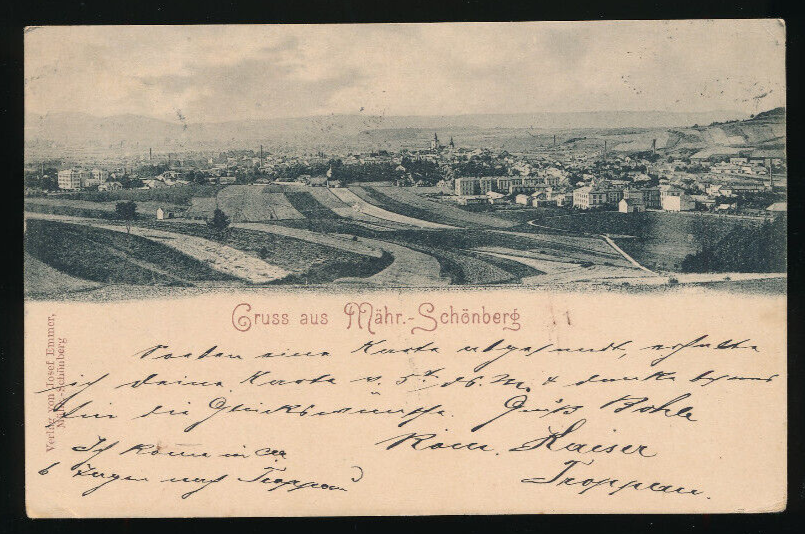 Gruss aus Mähr.-Schönberg
Verlag von Josef Emmer,
Mähr.-Schönberg
Soeben eine Karte abgesandt, erhalte
ich deine Karte v. 5t ds. M. & danke bestens
für die Glückwünsche. Gruß
Rom. Kaiser
Troppau.
Ich komme in
6 Tagen nach Troppau